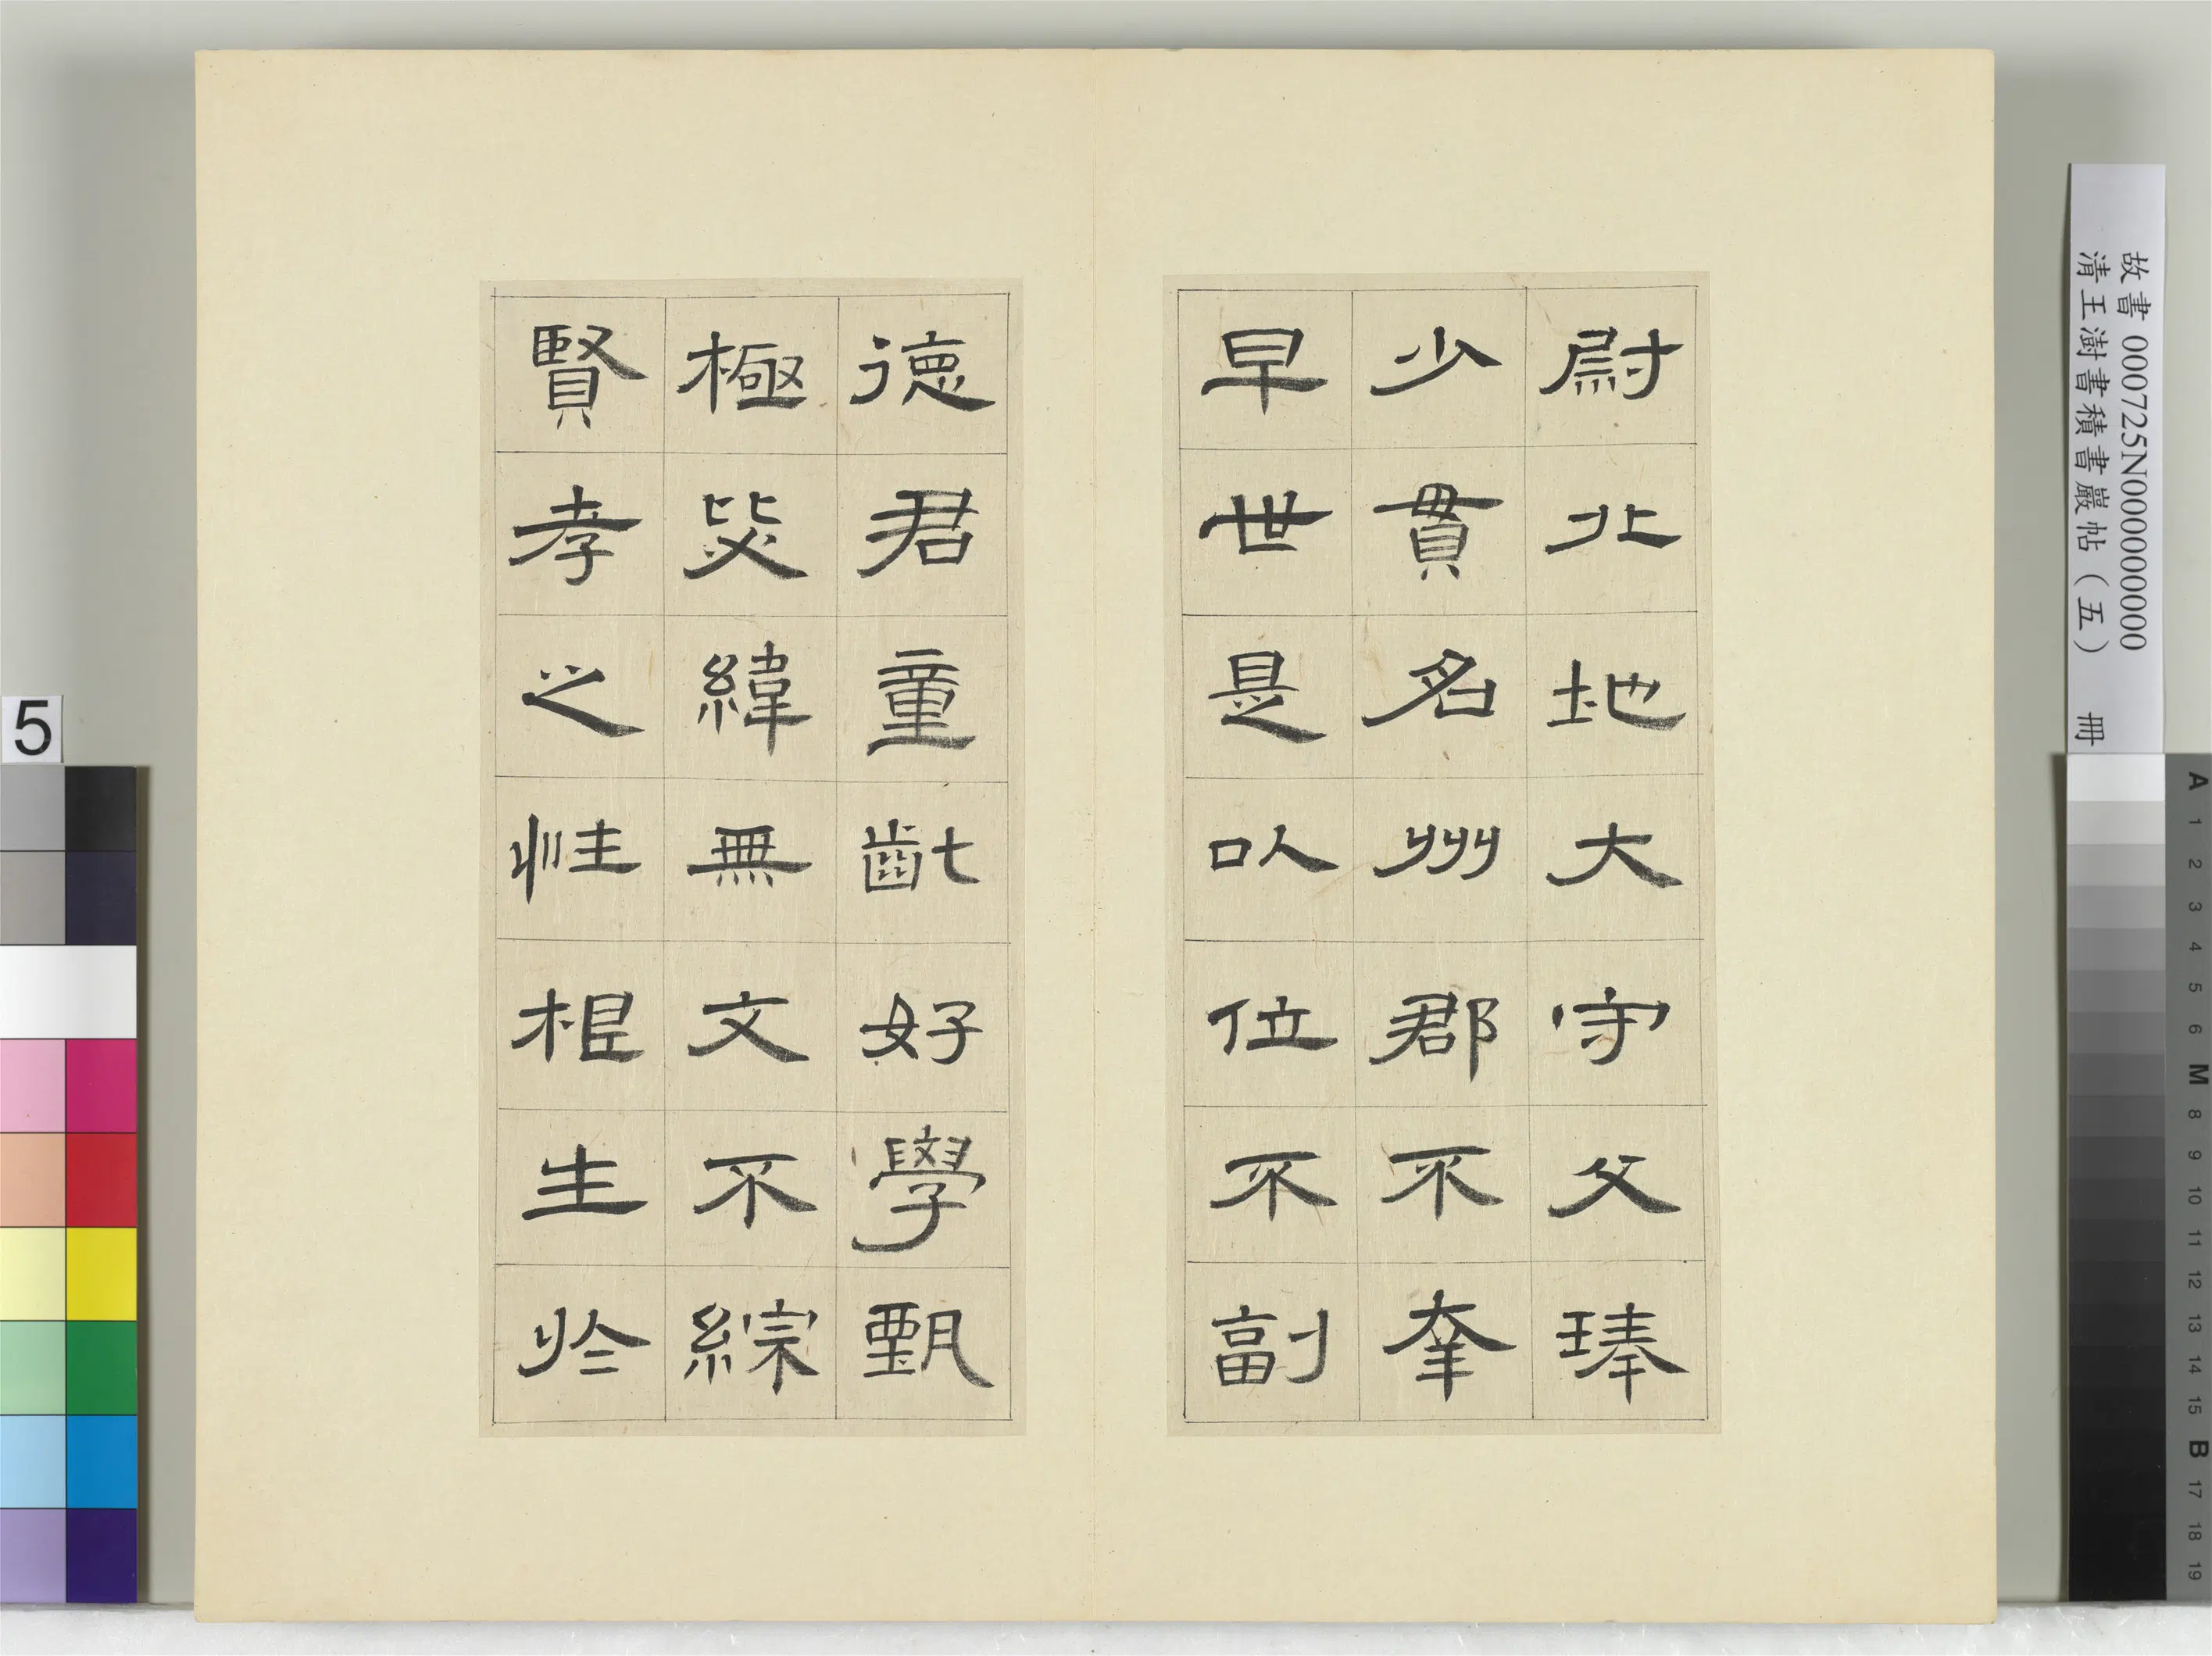 尉北地大守父琫
少貫名州郡不夆
早世是以位不副
德君童齔好學甄
極毖緯無文不綜
賢孝之性根生於
故書 000725N000000000
清王澍書積書巖帖（五） 冊
5
A 1 2 3 4 5 6 M 8 9 10 11 12 13 14 15 B 17 18 19